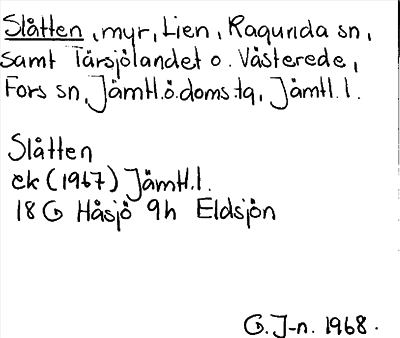 Slåtten, myr, Lien, Ragunda sn,
samt Tärsjölandet o. Västerede,
Fors sn, Jämtl.ö.doms.tg, Jämtl. l.
Slåtten
ek (1967) Jämtl.l.
18 G Håsjö 9h Eldsjön
G. J-n. 1968.